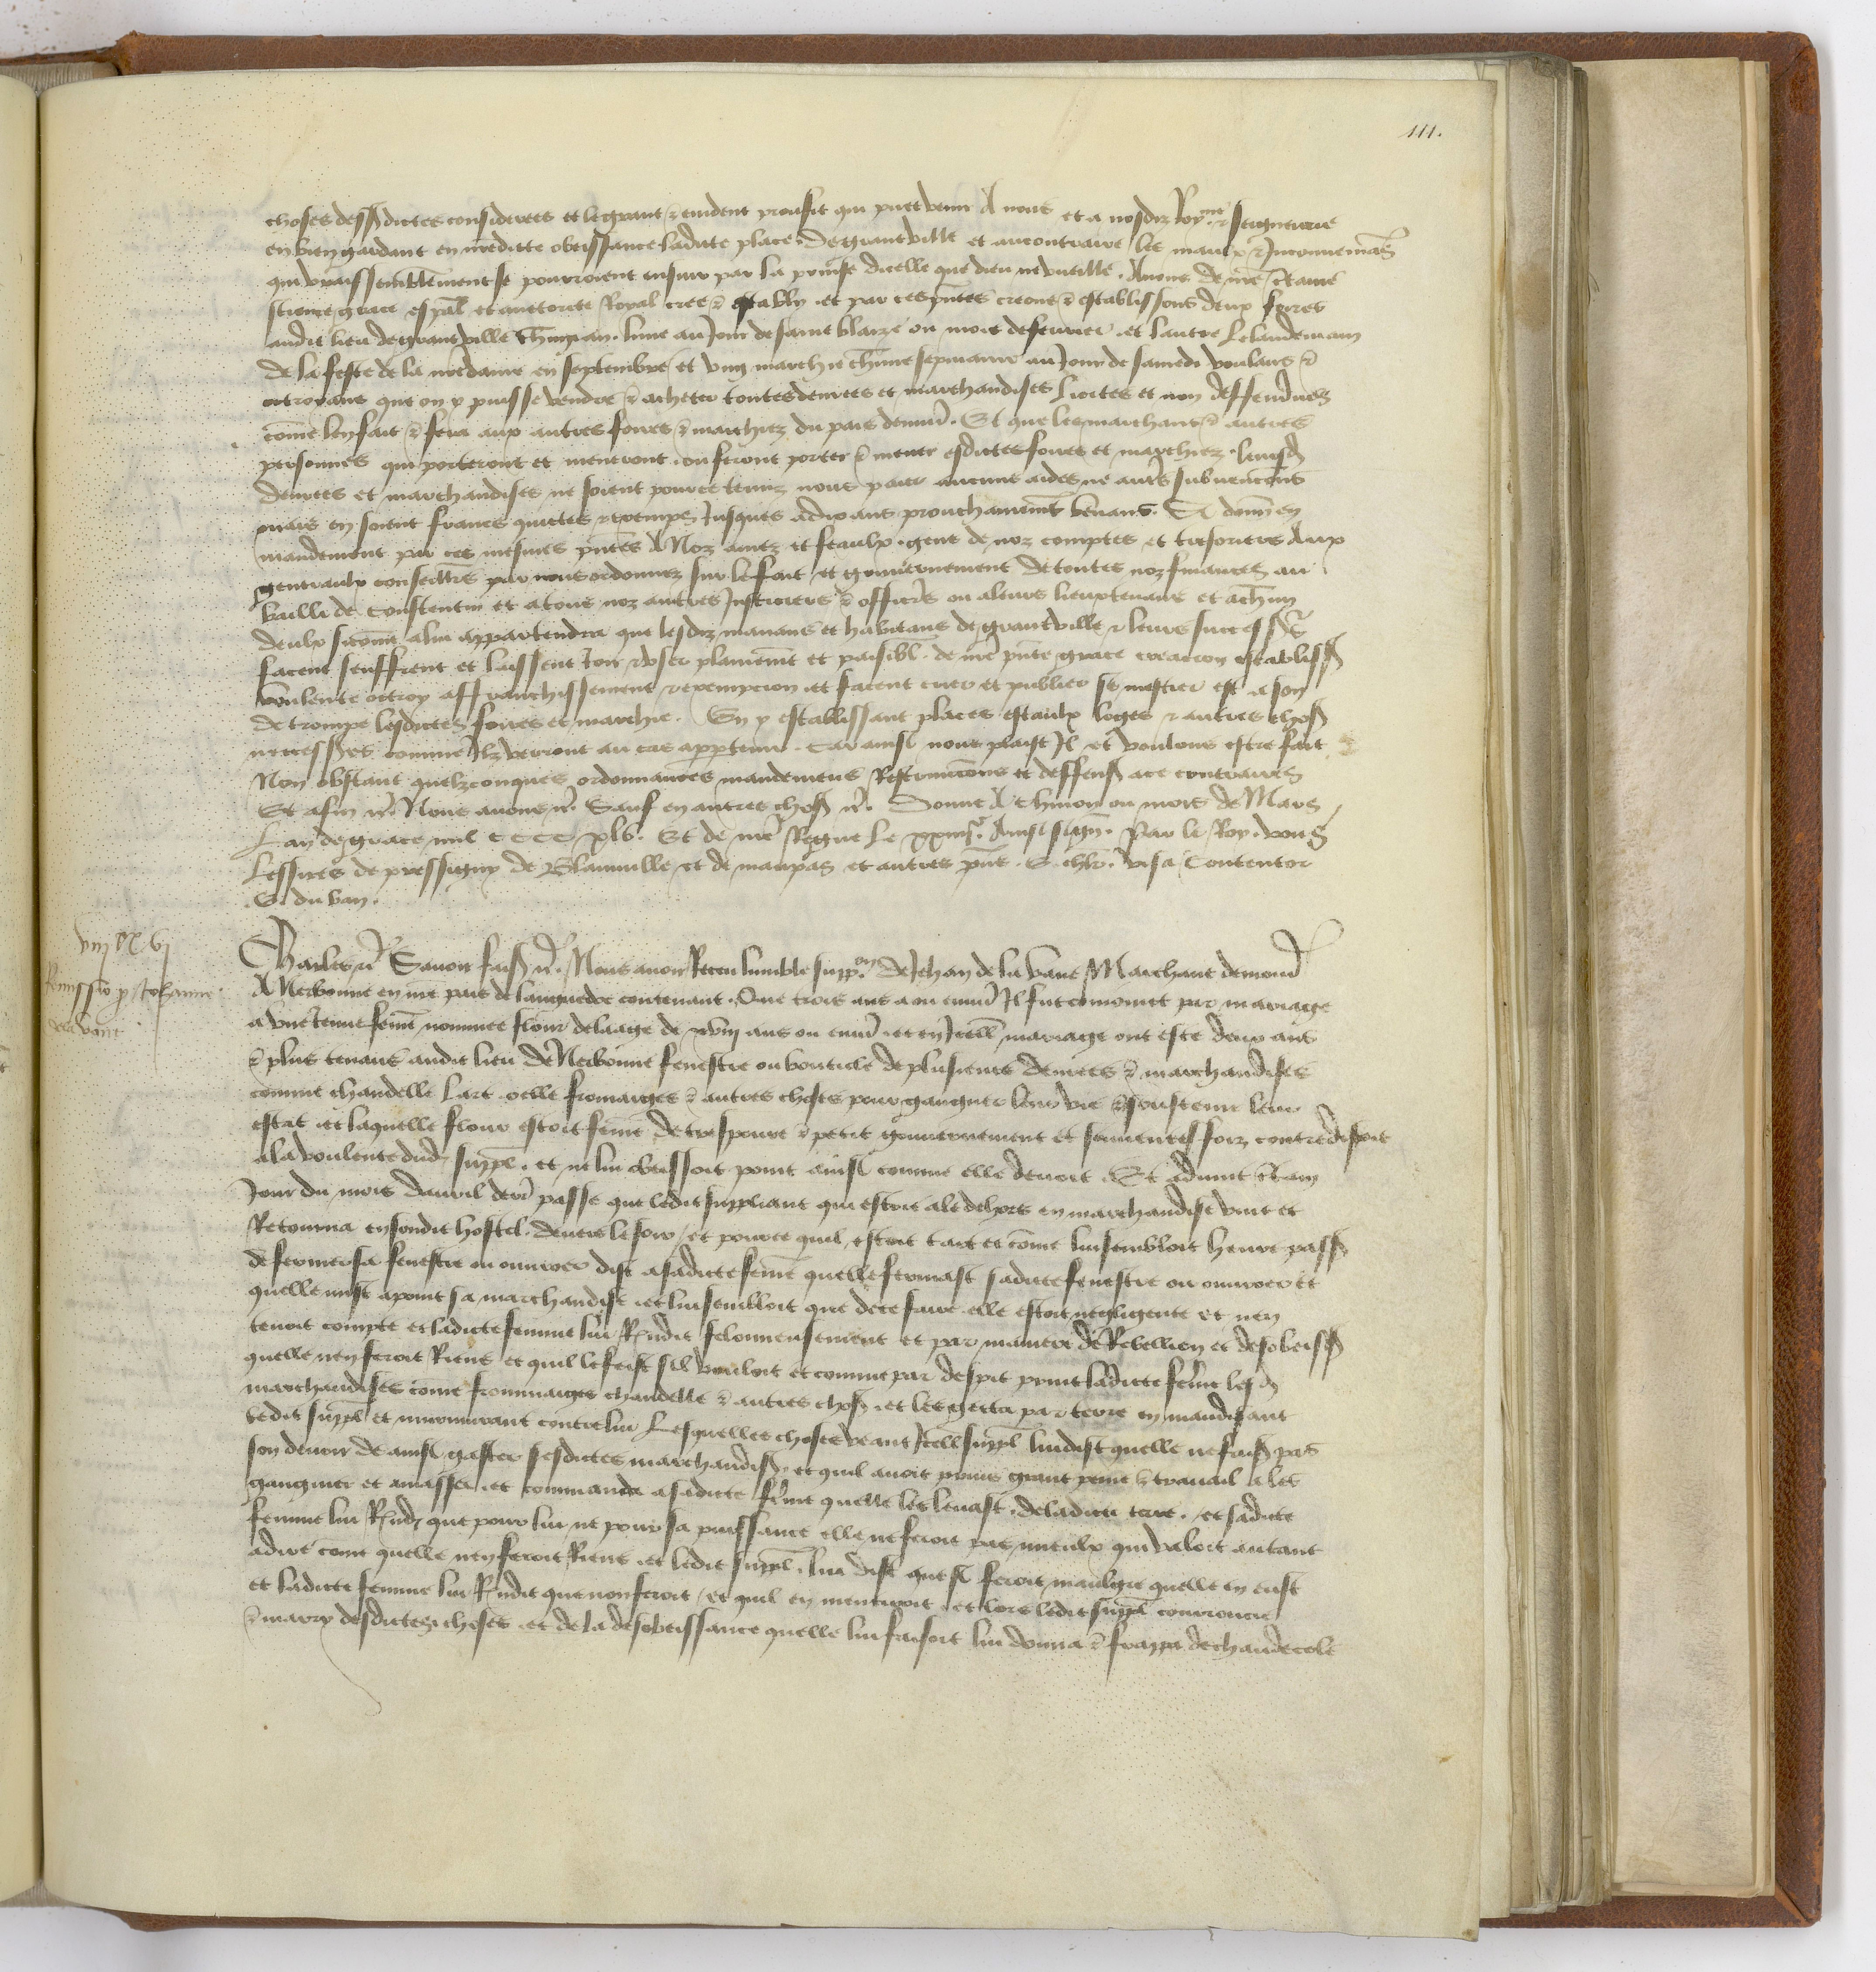 111.
choses dessusdictes considerees et le grant & evident proufit qui puet venir A nous et a nosdiz Royme & seigneurie
en bien gardant en nredicte obeissance ladicte place de grantville et au contraire les maulx & Inconveniens
qui vraissemblablement se pourroient ensuir par la prinse dicelle que dieu ne vueille. Avons de nre certaine
science grace espal et auctorite Royal cree & establi et par ces pntes creons & establissons deux foires
audit lieu de grantville chun an. lune au Jour de saint blaize ou mois de fevrier et lautre Lelandemain
de la feste de la nredame en septembre et ung marchie chune sepmaine au Jour de samedi voulans &
octroyans que on y puisse vendre & acheter toutes denrees et marchandises licites et non deffendues
come len fait & fera aux autres foires & marchiez du pais denviron. Et que les marchans & autres
personnes qui porteront et menront ou feront porter & mener esdictes foires et marchiez leursd
denrees et marchandises ne soient pource tenuz nous paier aucuns aides ne autres subvencions
mais en soient francs quictes & exemps Jusques a dix ans prouchainemt venans. Si donnons en
mandement par ces mesmes pntes A Noz amez et feaulx gens de noz comptes et tresoriers Aux
generaulx conseillers par nous ordonnez sur le fait et gouvernement de toutes noz finances au
bailli de Constentin et a tous noz autres Justiciers & officiers ou a leurs lieuxtenans et a chun
deulx sicome a lui appartendra que lesdiz manans et habitans de grantville & leurs successrs
facent seuffrent et laissent Joir & user plainemt et paisibl. de nre pnte grace creacion establiss
voulente octroy affranchissement & exempcion et facent crier et publier se mestier est a son
de trompe lesdictes foires et marchie. En y establissant places estaulx loges & autres choses
necessres comme Ilz verront au cas appartenir. Car ainsi nous plaist Il et voulons estre fait
Non obstant quelzconques ordonnances mandemens Restrincions et deffenses ace contraires
Et afin &c. Nous avons &c. Sauf en autres choses &c. Donne A Chinon ou mois de Mars
Lan de grace mil CCCC xlv. Et de nre Regne le xxiiije. Ainsi signe. Par le Roy. vous
Lessires de pressigny de Blainville et de maupas et autres pns. E. chlr. visa Contentor
E. du ban.
viij ix vj
Remissio p Johanne
de la vane
Charles &c. Savoir faisons &c. Nous avoir Receu lumble suppon de Jehan de la vane Marchant demourant
A Nerbonne en nre pais de languedoc contenant. Que trois ans a ou environ Il fut conjoinct par mariage
a une Jeune feme nommee flour de laage de xviij ans ou environ et en Icell mariage ont este deux ans
& plus tenans audit lieu de Nerbonne fenestre ou bouticle de plusieurs denrees & marchandises
comme chandelle lart oelle fromaiges & autres choses pour gaigner leur vie & soustenir leur
estat et laquelle flour estoit feme de trespovre & petit gouvernement et souventesfoiz contredisoit
a la voulente dud. suppl. et ne lui obeissoit point ainsi comme elle devoit. Et advint certain
Jour du mois davril derr passe que ledit suppliant qui estoit ale dehors en marchandise vint et
Retourna en sondit hostel devers le soir et pource quil estoit tart et come lui sembloit heure passee
de fermer sa fenestre ou ouvroer dist a sadicte feme quelle fermast sadicte fenestre ou ouvroer et
quelle mist apoint sa marchandise et lui sembloit que de ce faire elle estoit negligente et nen
tenoit compte et ladicte femme lui Rndit felonneusement et par maniere de Rebellion et desobeiss
quelle nen feroit Riens et quil le feist sil vouloit et comme par despit print ladicte feme lesd
marchandises come frommaiges chandelle & autres choses et les gecta par terre en maudisant
ledit suppl et murmurant contre lui Lesquelles choses veant Icell suppl lui dist quelle ne faisoit pas
son devoir de ainsi gaster sesdictes marchandises et quil avoit prins grant peine & travail a les
gaigner et amasser et commanda a sadicte feme quelle les levast de ladicte terre. et sadicte
femme lui Rndi que pour lui ne pour sa puissance elle ne feroit pas mieulx qui valoit autant
a dire come quelle nen feroit Riens et ledit suppl. lui dist que si feroit maulgre quelle en eust
et ladicte femme lui Rndit que non feroit et quil en mentiroit et lors ledit suppl courroucie
& marry desdictes choses et de la desobeissance quelle lui faisoit lui donna & frappa de chaude cole